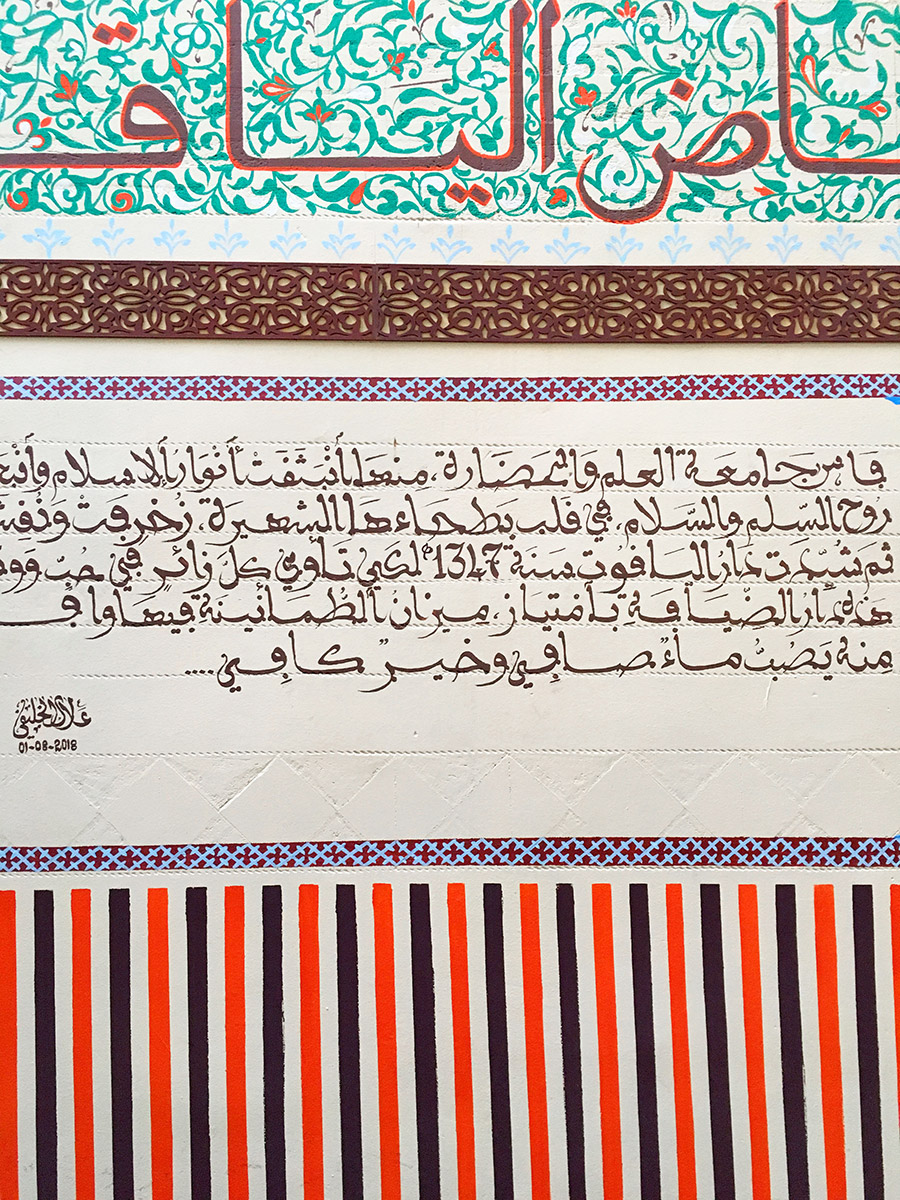 ـاض اليـاقـ
فاس جامعة العلم والحضارة، منها أنبثقت أنوار الإسلام وأنبـ
روح السلم والسلام، في قلب بطحاءها الشهيرة، زخرفت ونقشـ
ثم شيدت دار الياقوت سنة 1347ھ لكي تأوي كل زائرٍ في حب
هذه دار الضيافة بامتياز، ميزان الطمأنينة فيها
منه يَصُبُّ ماءٌ صافي وخيرٌ كافي....
علال الخليفي
01-08-2018